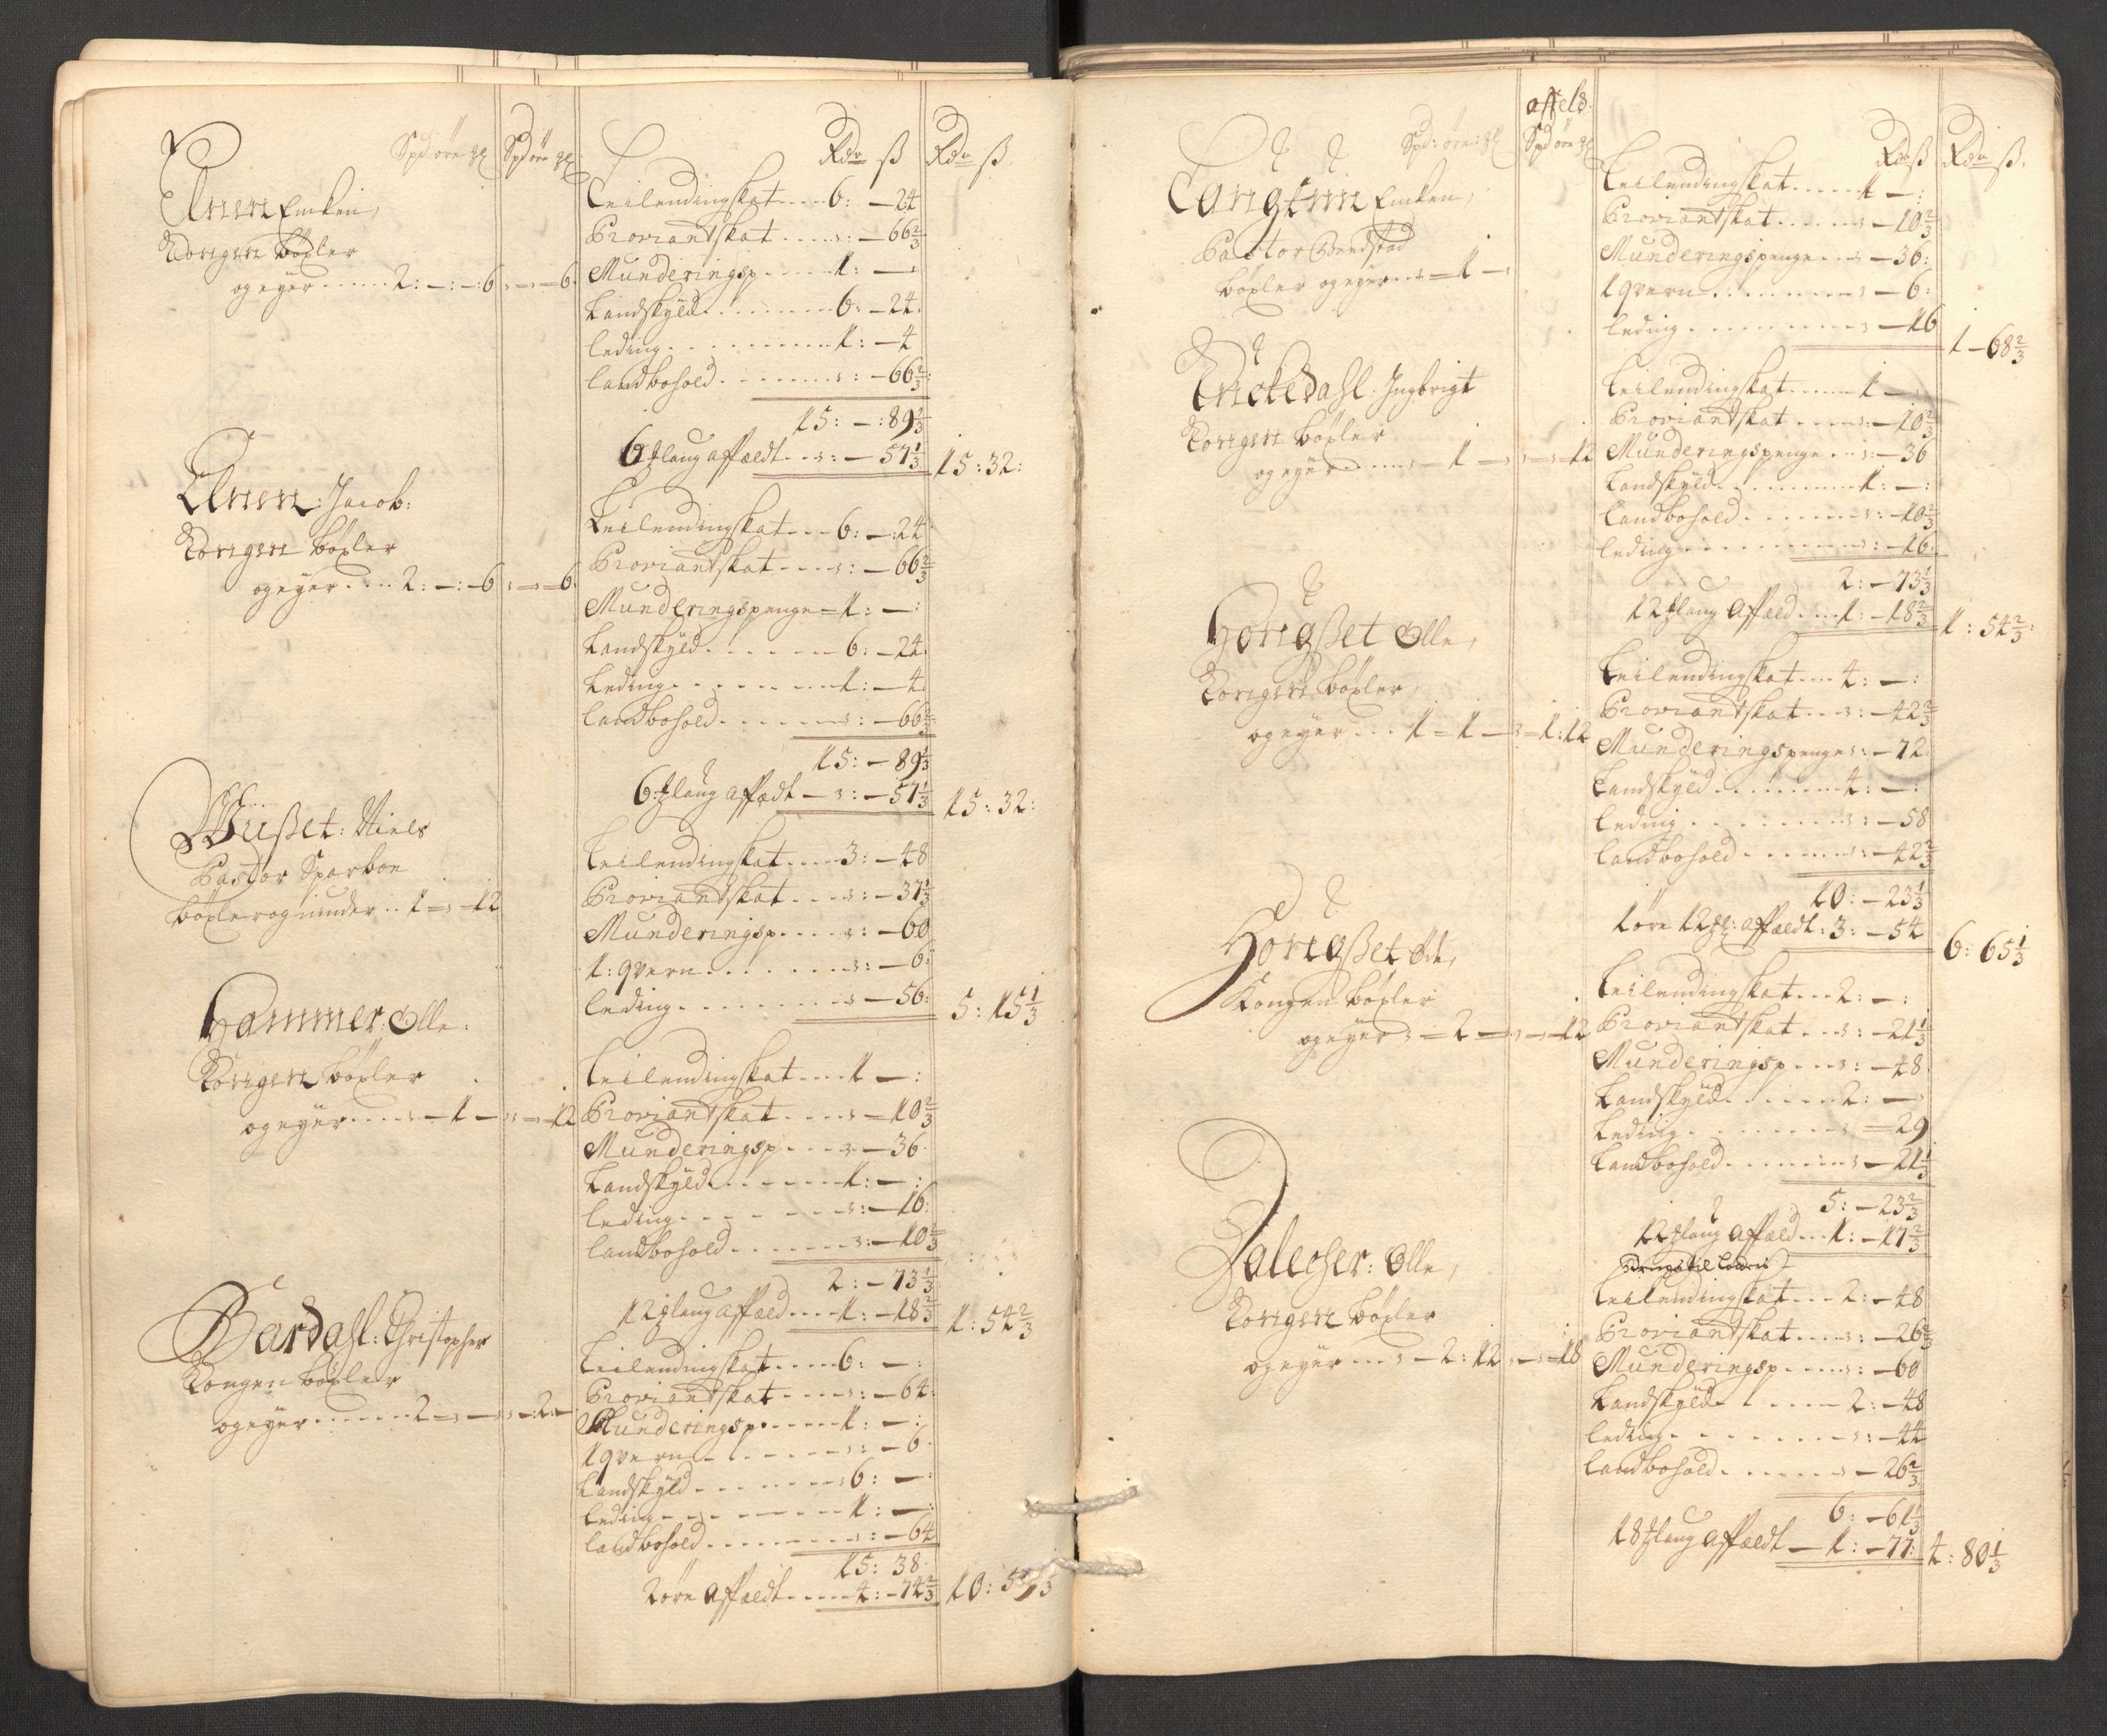 Spd øre
Spd øre
Rdr ß
Rdr ß.
Emken,
Kongen böxler
og eyer ..... 2: – : – 6
– 6
Leilendingskat .... 6: – 24
Proviantskat ....: – 66 2/3
Munderingsp ..... 1: – :
Landskÿld ........ 6: – 24.
leding ......... 1: – 4
landbohold ......: – 66 2/3
15: – : 89 1/3
6 laug affældt ..: – 57 1/3
15: 32:
Jacob:
Kongen böxler
og eyer .... 2: – : – 6
– 6
Leilendingskat ... 6: – 24
Proviantskat ....: – 66 2/3
Munderingspenge – 1: – :
Landskÿld ...... 6: – 24.
Leding ........ 1: – 4
landbohold ......: – 66 2/3
15: – 89 1/3
6 laug affædt –: – 57 1/3
15: 32:
Niels
Pastor Sparboe
böxler og .. 1 – 12
Leilendingskat .... 3: – 48
Proviantskat ....: – 37 1/3
Munderingsp ....: – 60
1: qvern .......: – 6:
leding ........ – 56:
5: 15 1/3
Hammer: Olle:
Kongen böxler
og eyer .... – 1 –
– 12
Leilendingskat .... 1 – :
Proviantskat .... – 10 2/3
Munderingsp ... – 36.
Landskÿld ...... 1: – :
leding .......: – 16:
landbohold ......: – 10 2/3
2: – 73 1/3
12 laug affæld .... 1: – 18 2/3
1: 54 2/3
Bardahl: Christopher
Kongen böxler
og eyer ...... 2 –
– 2: –
Leilendingskat .... 6: – :
Proviantskat ....: – 64:
Munderingsp ..... 1: – :
1 qvern .......: – 6.
Landskÿld ....... 6: – :
leding ......... 1: – :
landbohold .......: – 64
15: 38.
2 øre affældt ..... 4: – 74 2/3
10:
affeld.
Spd: øre:
Spd øre
Rdr ß
Rdr ß.
Emken,
Pastor
böxler og eyer – 1 –
Leilendingskat ..... 1 – :
Proviantskat ..... – 10 2/3
Munderingspenge ... – 36:
1 qvern ........ – 6:
leding ......... – 16
1 – 68 2/3
Ingbrigt
Kongen böxler
og eyer ..... – 1 –
– 12
Leilendingskat ..... 1 – :
Proviantskat ....: – 10 2/3
Munderingspenge ..: – 36
Landskÿld ........ 1: – :
landbohold ......: – 10 2/3
leding .........: – 16.
2: – 73 1/3
12 laug affæld .... 1: – 18 2/3
1: 54 2/3:
Olle,
Kongen böxler,
og eyer ... 1 – 1 –
– 1: 12
Leilendingskat ... 4: – :
Proviantskat ...: – 42 2/3
Munderingspenge: – 72.
Landskÿld ........ 4: – :
leding ........: – 58
landbohold ......: – 42 2/3
10: – 23 1/3
1 øre 12 affældt: 3: – 54
6: 65 1/3
Kongen böxler
og eyer – 2 –
– 12
Leilendingskat ... 2: – :
Proviantskat ...: – 21 1/3
Munderingsp ...: – 48
Landskÿld ...... 2: – :
Leding ........ – 29
Landbohold ....... – 21 1/3
5: – 23 2/3
12 laug affæld ... 1: – 17 2/3
Olle,
Kongen böxler
og eyer ... – 2: 12
– 18
Leilendingskat ... 2: – 48
Proviantskat ....: – 26 2/3
Munderingsp ....: – 60
Landskÿld ...... 2: – 48
leding .........: – 44
landbohold ....... – 26 2/3
6: – 61 1/3
18 laug affældt – 1: – 77:
4: 80 1/3